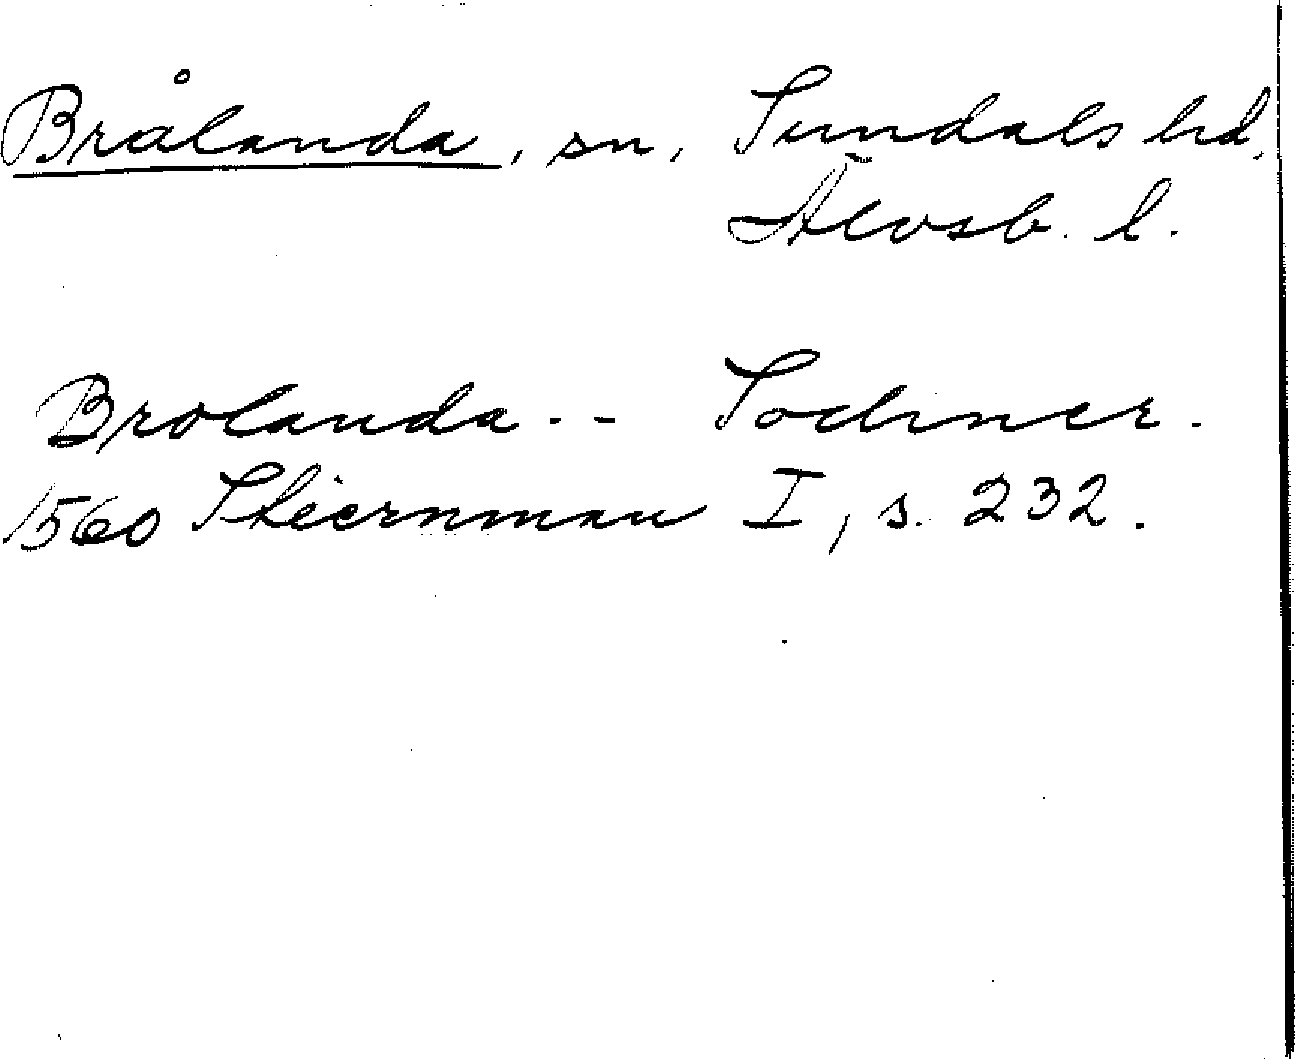 Brålanda, sn, Sundals hd,
Älvsb. l.
Brolanda -- Sochner.
1560 Stiernman I, s. 232.